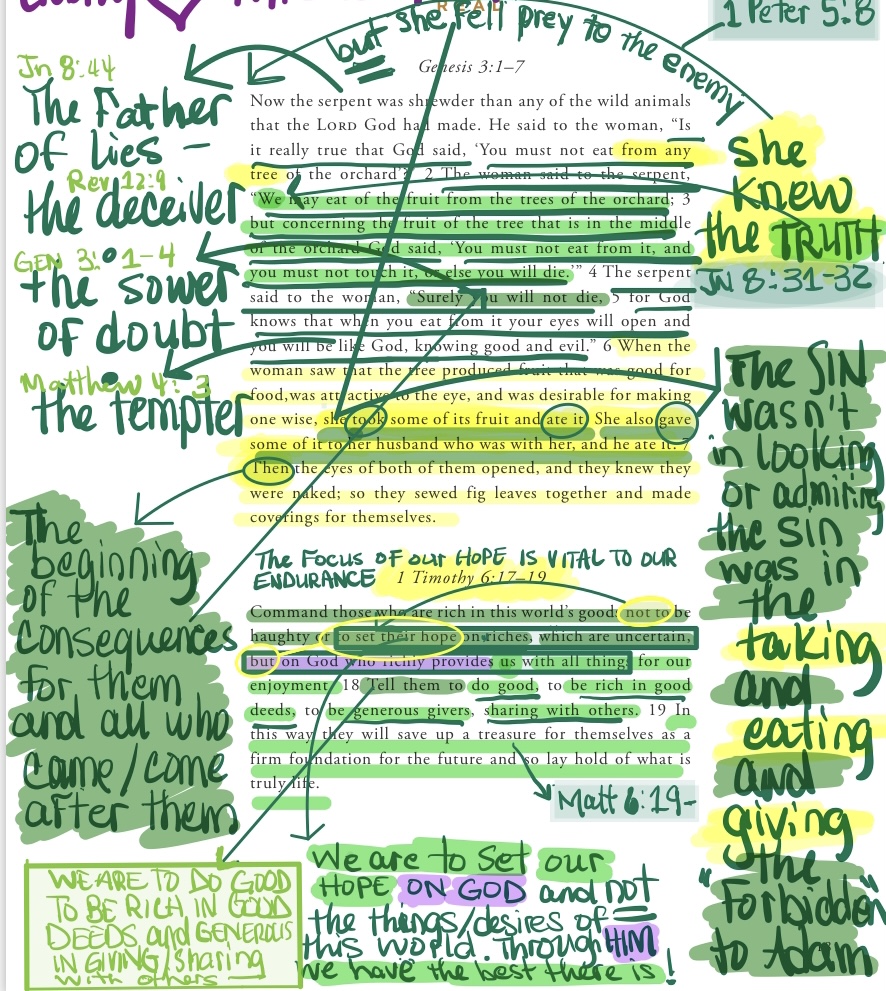 READ
but she fell prey to the enemy
1 Peter 5:8
Genesis 3:1–7
Jn 8:44
The Father
of lies –
Rev 12:9
the deceiver
GEN 3: 1-4
the sower
of doubt
Matthew 4: 3
the tempter
Now the serpent was shrewder than any of the wild animals
that the LORD God had made. He said to the woman, “Is
it really true that God said, ‘You must not eat from any
tree of the orchard’?” 2 The woman said to the serpent,
“We may eat of the fruit from the trees of the orchard; 3
but concerning the fruit of the tree that is in the middle
of the orchard God said, ‘You must not eat from it, and
you must not touch it, or else you will die.’” 4 The serpent
said to the woman, “Surely you will not die, 5 for God
knows that when you eat from it your eyes will open and
you will be like God, knowing good and evil.” 6 When the
woman saw that the tree produced fruit that was good for
food,was attractive to the eye, and was desirable for making
one wise, she took some of its fruit and ate it. She also gave
some of it to her husband who was with her, and he ate it. 7
Then the eyes of both of them opened, and they knew they
were naked; so they sewed fig leaves together and made
coverings for themselves.
she
knew
the TRUTH
JN 8:31-32
The SIN
wasn't
in looking
or admiring
the sin
was in
the
taking
and
eating
and
giving
the
"Forbidden"
to Adam
The
beginning
of the
consequences
for them
and all who
came/come
after them
The Focus of our HOPE IS VITAL TO OUR
ENDURANCE
1 Timothy 6:17–19
Command those who are rich in this world’s goods not to be
haughty or to set their hope on riches, which are uncertain,
but on God who richly provides us with all things for our
enjoyment. 18 Tell them to do good, to be rich in good
deeds, to be generous givers, sharing with others. 19 In
this way they will save up a treasure for themselves as a
firm foundation for the future and so lay hold of what is
truly life.
Matt 6:19-
WE ARE TO DO GOOD
TO BE RICH IN GOOD
DEEDS and GENEROUS
IN GIVING/sharing
with others
We are to Set our
HOPE ON GOD and not
the things/desires of
this world. Through HIM
We have the best there is!